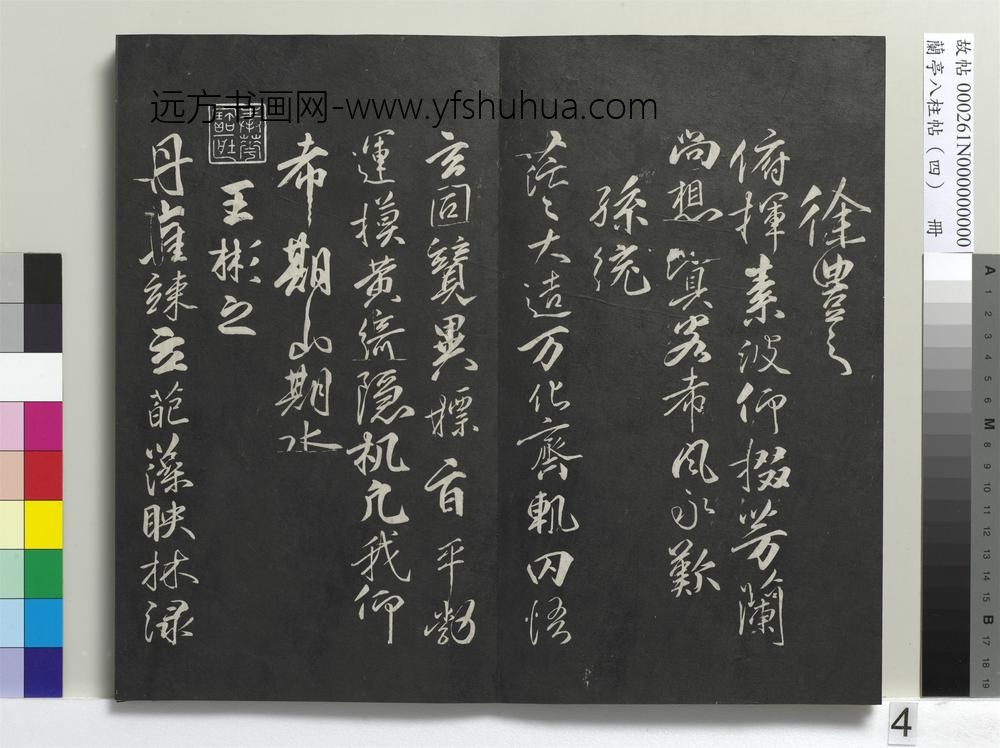 远方书画网-www.yfshuhua.com
故帖 000261N000000000
蘭亭八柱帖（四） 冊
徐豊之
俯揮素波仰掇芳蘭
尚想客希風永歎
孫統
茫〻大造万化齊軌罔悟
玄同競異摽旨平勃
運摸黄綺隐机凡我仰
希期山期水
王彬之
丹崖竦立葩藻映林渌
A 1 2 3 4 5 6 M 8 9 10 11 12 13 14 15 B 17 18 19
4